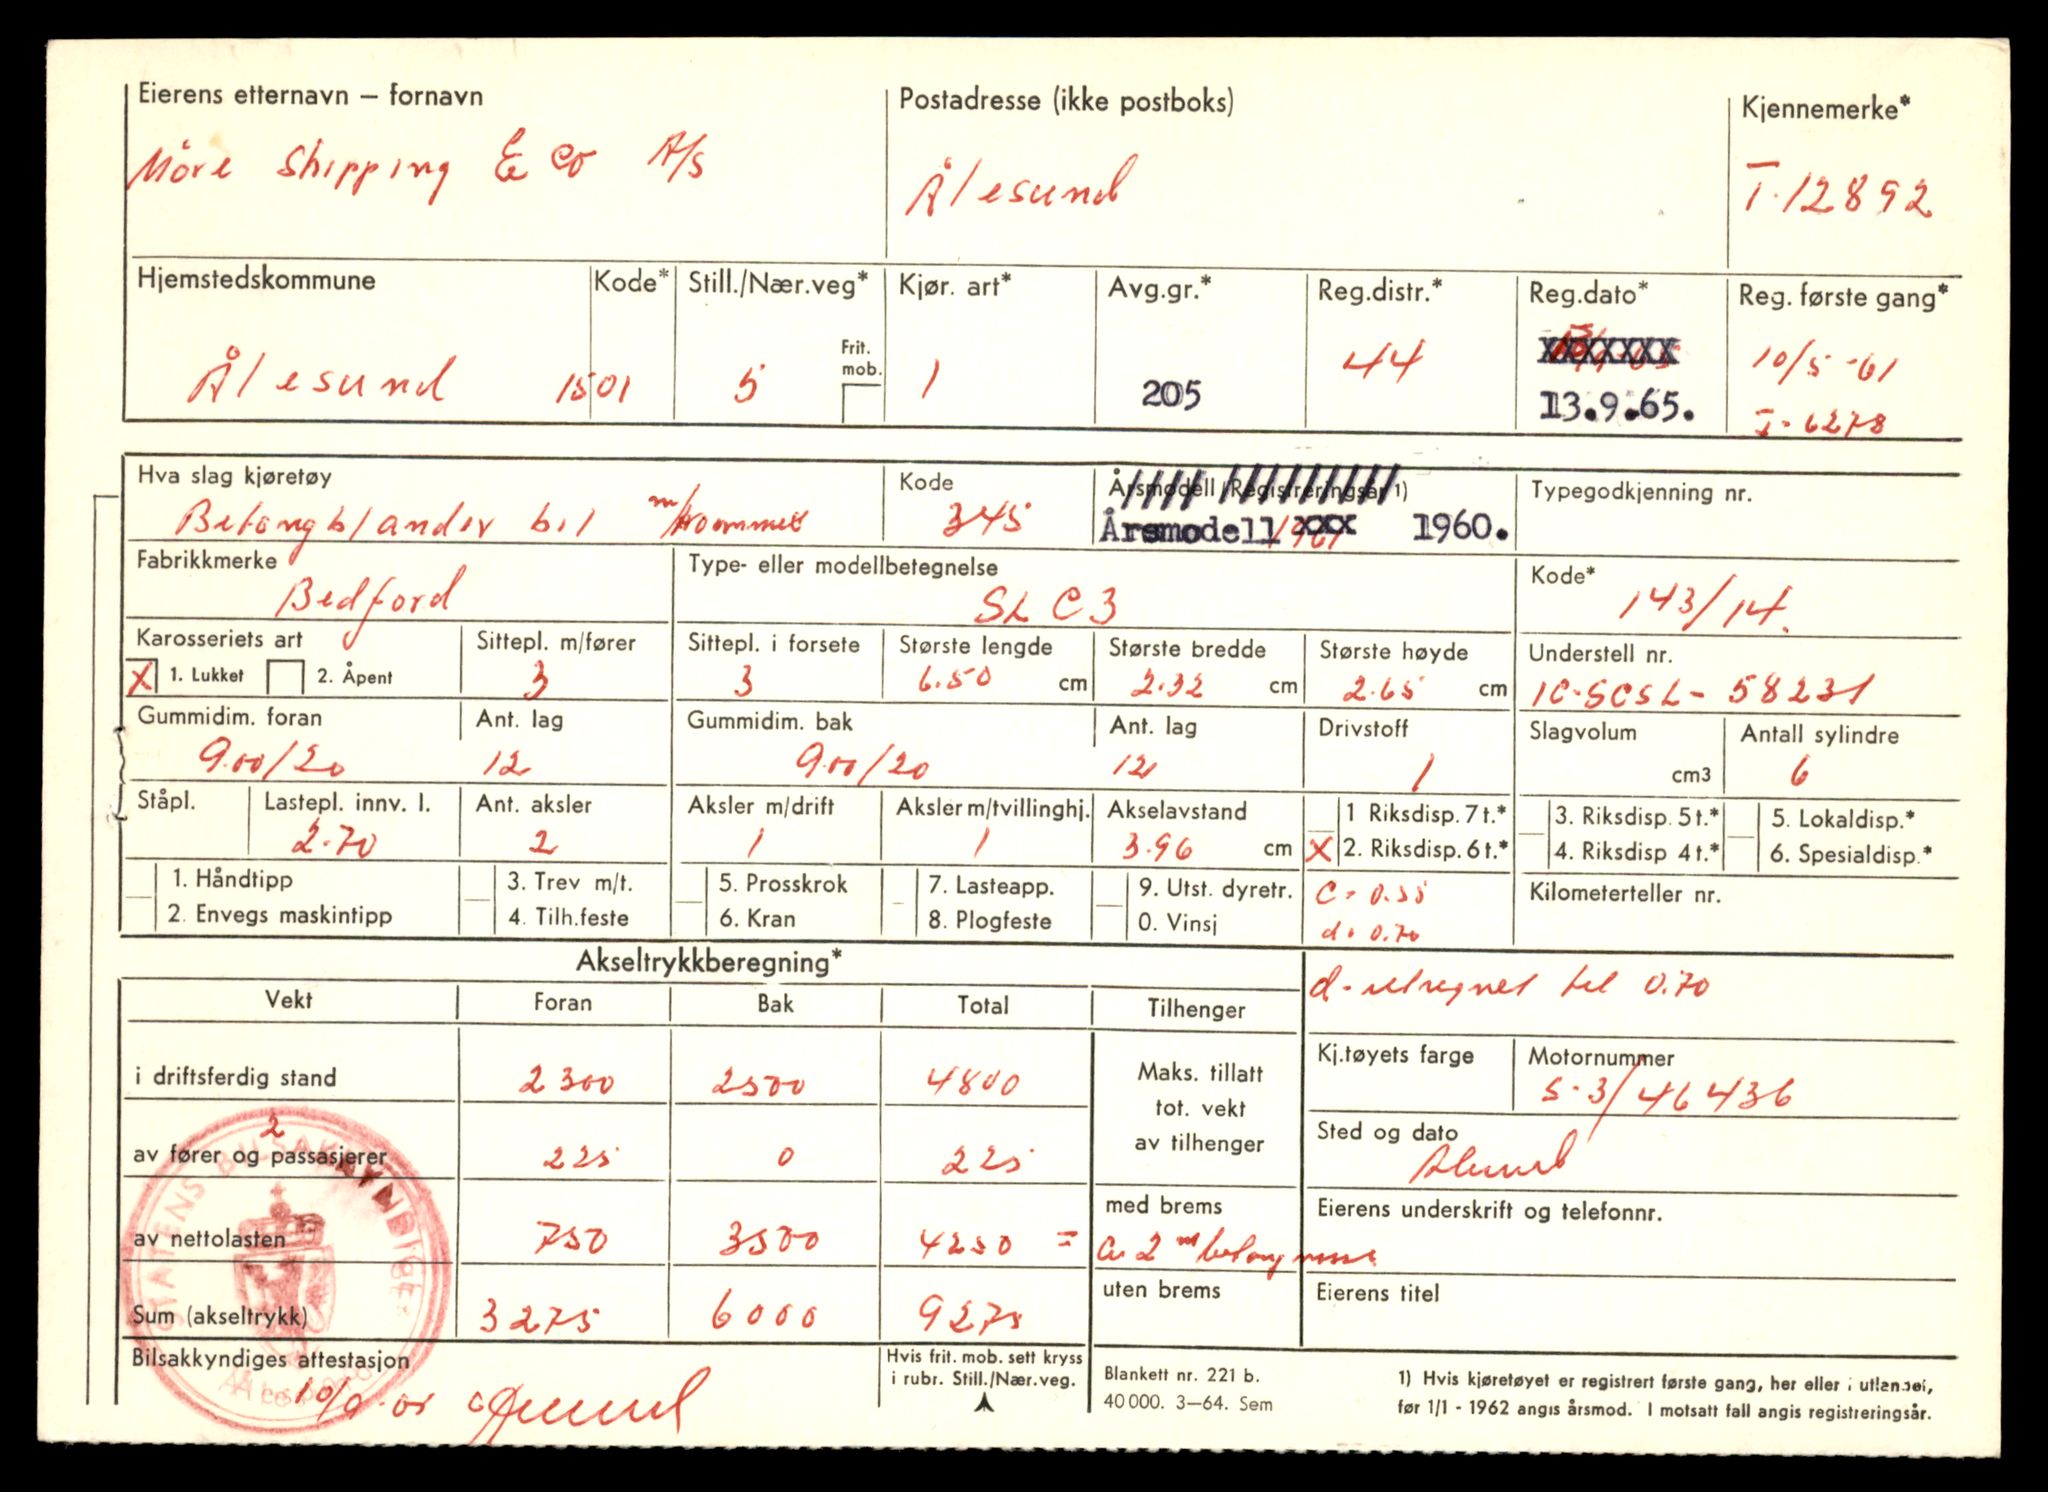 Eierens etternavn – fornavn
Møre Shipping & Co A/S
Postadresse (ikke postboks)
Ålesund
Kjennemerke*
T-12892
Hjemstedskommune
Ålesund
Kode*
1501
Still./Nær.veg*
5
Frit. mob.
Kjør. art*
1
Avg.gr.*
205
Reg.distr.*
44
Reg.dato*
XXXXXXX
13.9.65.
Reg. første gang*
10/5-61
I-6278
Hva slag kjøretøy
Betongblander bil m/trommel
Kode
345
Årsmodell/Registreringsår 1)
Årsmodell xxx 1960.
1961
Typegodkjenning nr.
Fabrikkmerke
Bedford
Type- eller modellbetegnelse
SL C3
Kode*
143/14.
Karosseriets art
X 1. Lukket 2. Åpent
Sittepl. m/fører
3
Sittepl. i forsete
3
Største lengde
6.50 cm
Største bredde
2.32 cm
Største høyde
2.65 cm
Understell nr.
1C-SCSL-58231
Gummidim. foran
9.00/20
Ant. lag
12
Gummidim. bak
9.00/20
Ant. lag
12
Drivstoff
1
Slagvolum
cm3
Antall sylindre
6
Ståpl.
Lastepl. innv. l.
2.70
Ant. aksler
2
Aksler m/drift
1
Aksler m/tvillinghj.
1
Akselavstand
3.96 cm
1 Riksdisp. 7 t.*
X 2. Riksdisp. 6 t.*
3. Riksdisp. 5 t.*
4. Riksdisp 4 t.*
5. Lokaldisp.*
6. Spesialdisp.*
1. Håndtipp
2. Envegs maskintipp
3. Trev m/t.
4. Tilh.feste
5. Prosskrok
6. Kran
7. Lasteapp.
8. Plogfeste
9. Utst. dyretr.
0. Vinsj
C = 0.55
d = 0.70
Kilometerteller nr.
Akseltrykkberegning*
d-utregnet til 0.70
Vekt Foran Bak Total Tilhenger
i driftsferdig stand 2300 2500 4800
Maks. tillatt
tot. vekt
av tilhenger
Kj.tøyets farge
Motornummer
S-3/46436
2
av fører og passasjerer 225 0 225
Sted og dato
Ålesund
av nettolasten 750 3500 4250 =
med brems
Ca 2 m³ betongmasse
Eierens underskrift og telefonnr.
Sum (akseltrykk) 3275 6000 9275
uten brems
Eierens titel
Bilsakkyndiges attestasjon
10/9-65
STATENS BILSAKKYNDIGE
Ålesund
Hvis frit. mob. sett kryss
i rubr. Still./Nær.veg.
Blankett nr. 221 b.
40 000. 3–64. Sem
1) Hvis kjøretøyet er registrert første gang, her eller i utlandet,
før 1/1 - 1962 angis årsmod. I motsatt fall angis registreringsår.